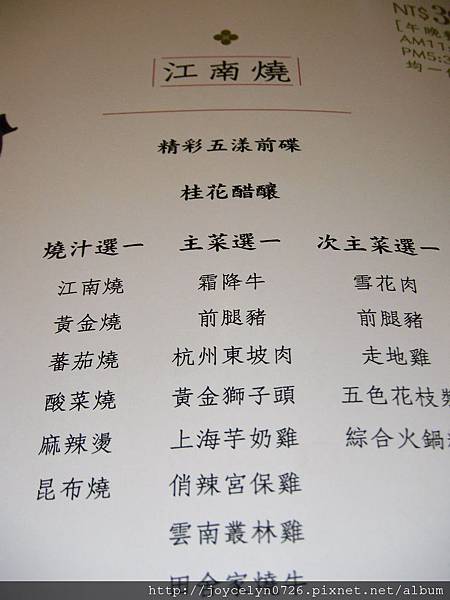 NT$
[午晚
AM11
PM5:3
均一
江南燒
精彩五漾前碟
桂花醋釀
燒汁選一 主菜選一 次主菜選一
江南燒 霜降牛 雪花肉
黃金燒 前腿豬 前腿豬
蕃茄燒 杭州東坡肉 走地雞
酸菜燒 黃金獅子頭 五色花枝漿
麻辣燙 上海芋奶雞 綜合火鍋
昆布燒 俏辣宮保雞
雲南叢林雞
田舍家燒牛
http://joycelyn0726.pixnet.net/album